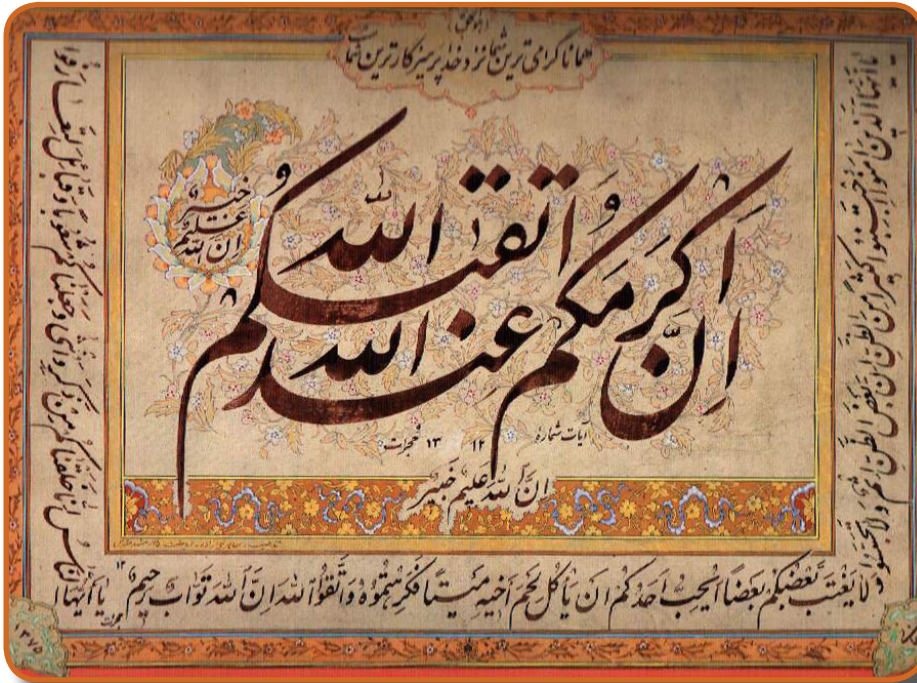 همانا گرامی ترین شما نزد خدا پرهیزکارترین شماست
اِنَّ اَکرَمَکُم عِندَ الله اَتقٰیکُم
اِنَّ الله عَلیمٌ خَبیرٌ
آیات شماره ۱۲ ۱۳ حجرات
اِنَّ الله عَلیمٌ خَبیرٌ
یا اَیُّهَا الَّذینَ امَنُوا اجتَنِبُوا کَثیراً مِنَ الظَّنِّ اِنَّ بَعضَ الظَّنِّ اِثمٌ وَلا تَجَسَّسُوا
وَلا یَغتَب بَعضُکُم بَعضاً اَیُحِبُّ اَحَدُکُم اَن یَأکُلَ لَحمَ اَخیهِ مَیتاً فَکَرِهتُمُوهُ وَاتَّقُوا الله اِنَّ الله تَوّابٌ رَحیمٌ ۱۲ یا اَیُّهَا
النّاسُ اِنّا خَلَقناکُم مِن ذَکَرٍ وَ اُنثی وَجَعَلناکُم شُعُوباً وَقَبائِلَ لِتَعارَفُوا